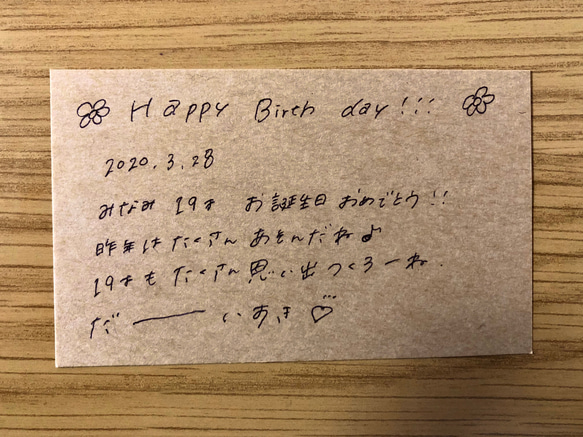 Happy Birth day!!!
2020.3.28
みなみ 19才 お誕生日 おめでとう!!
昨年は たくさん あそんだね♪
19才も たくさん 思い出 つくろーね.
だ――いすき♡